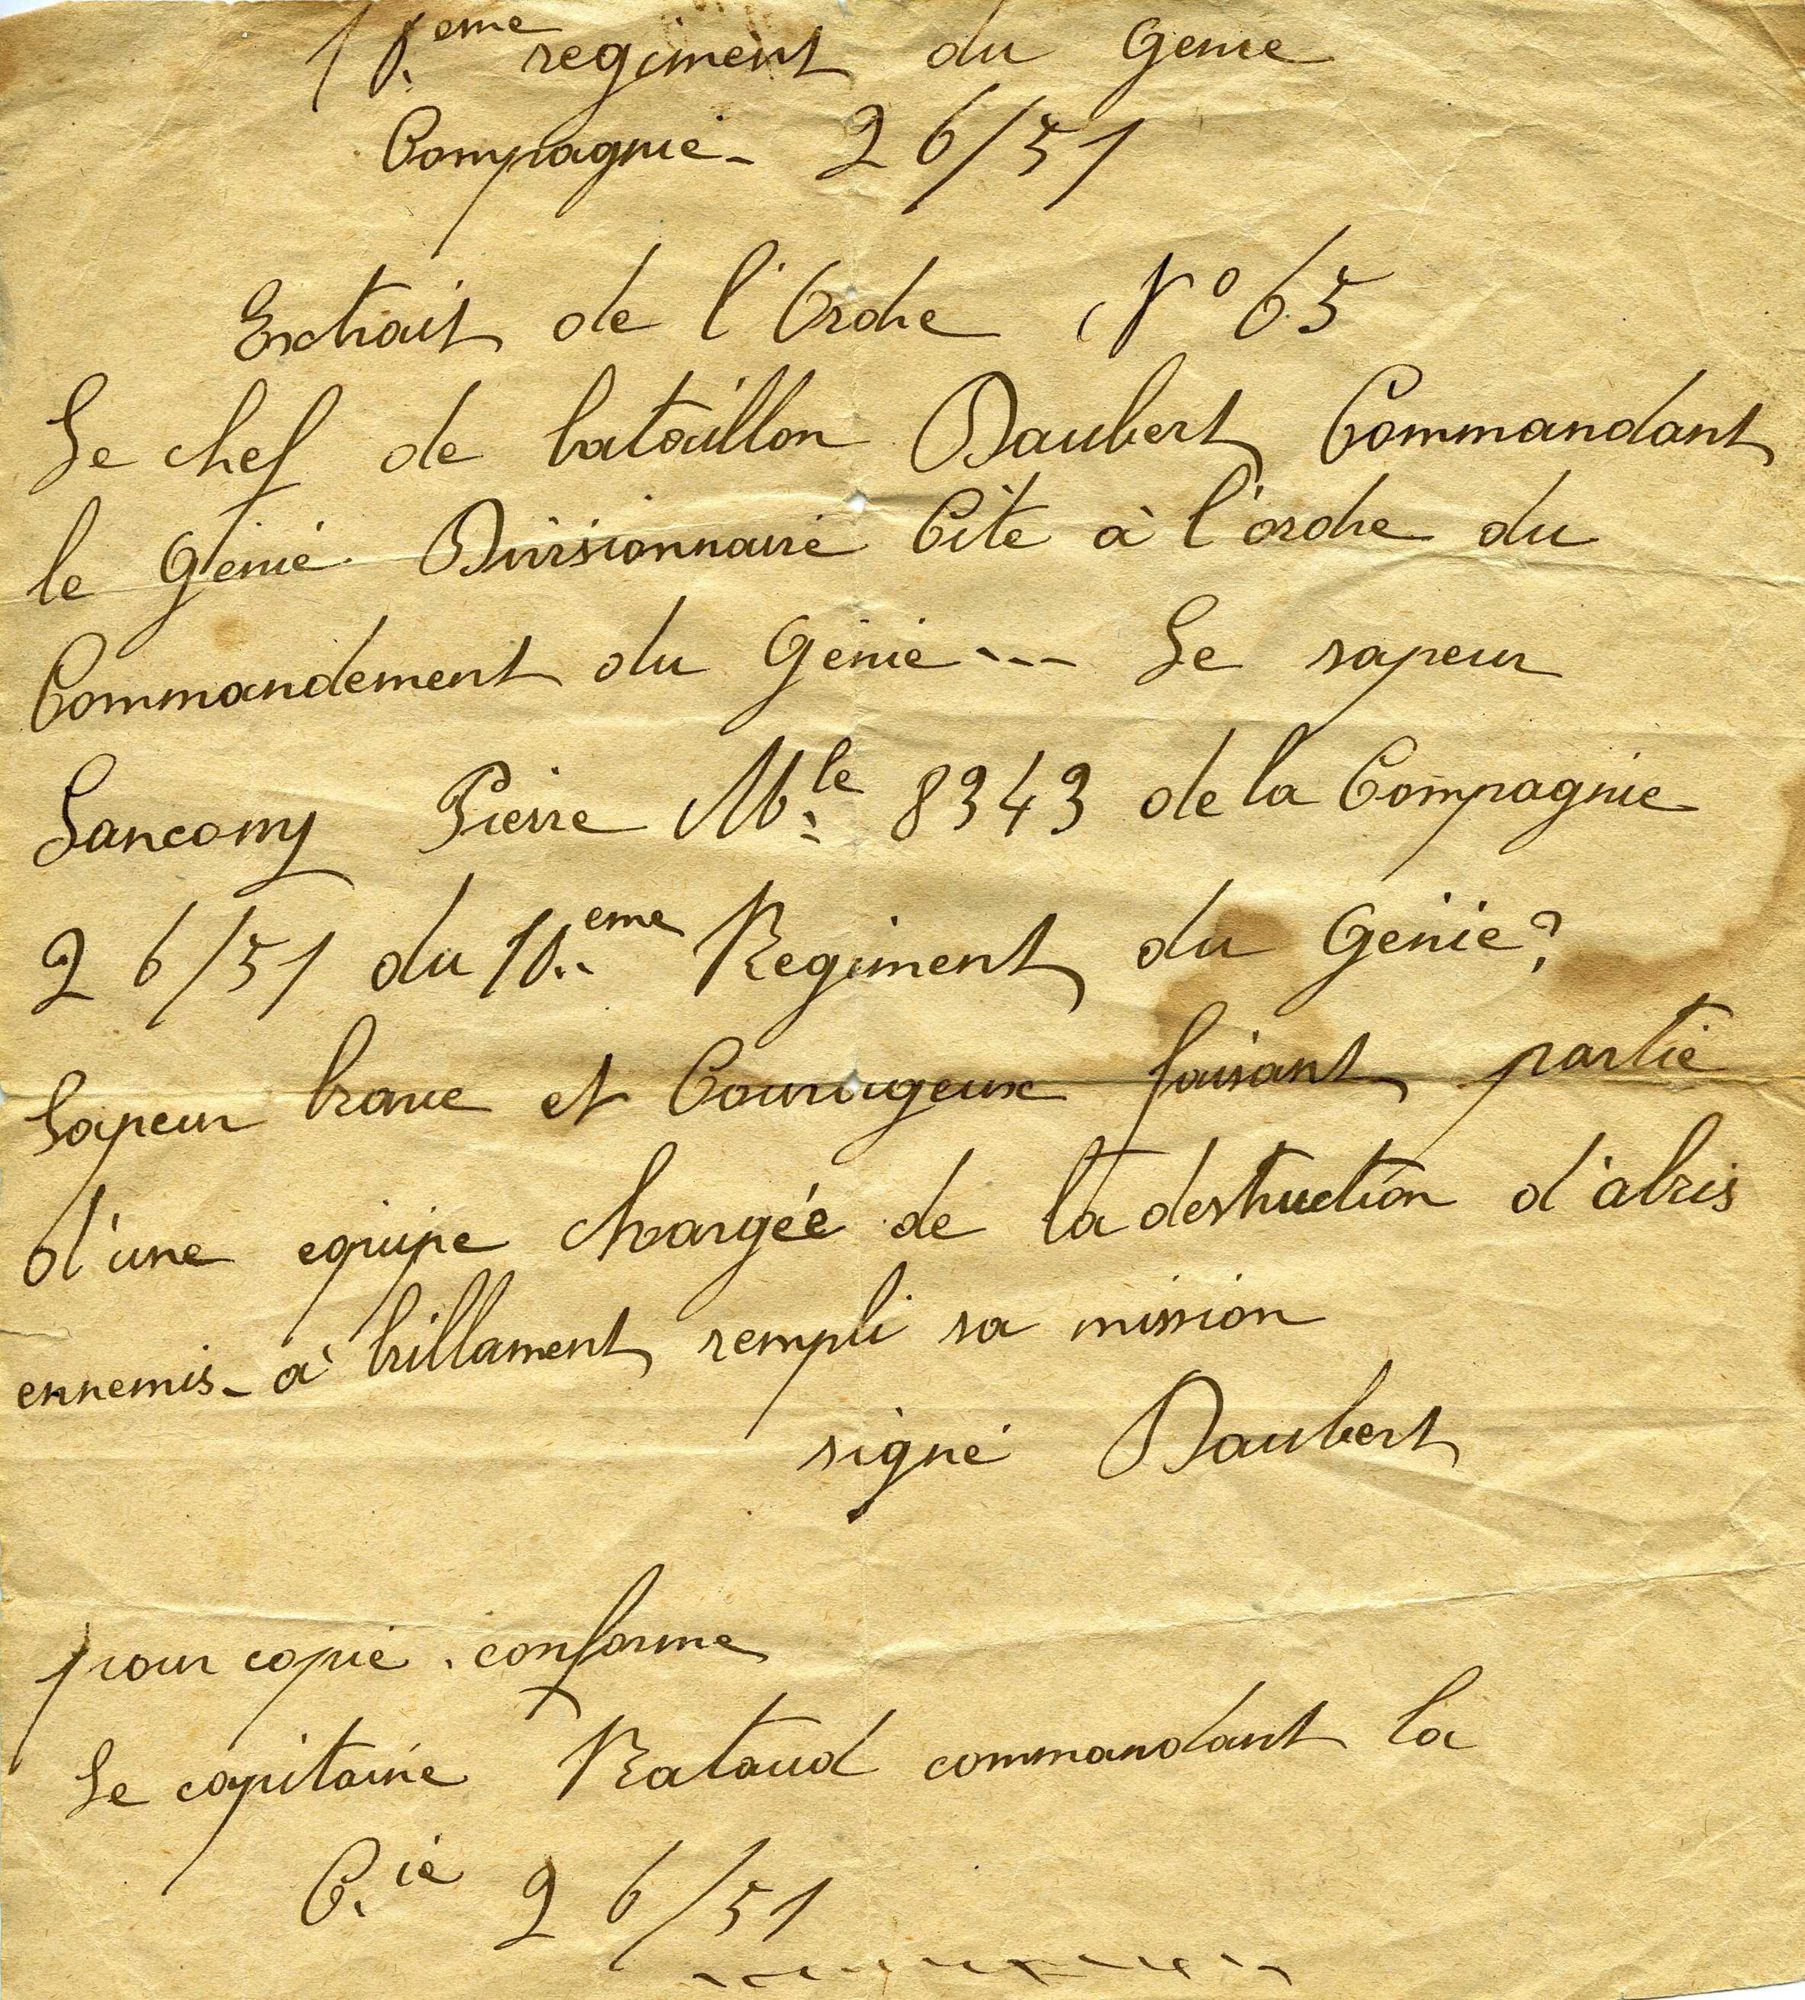 10.eme regiment du Genie
Compagnie - 26/51
Extrait de l'Ordre N° 65
Le chef de bataillon Daubert Commandant
le Génie Divisionnaire Cite à l'ordre du
Commandement du Génie --- Le sapeur
Lancomy Pierre Mle 8343 de la Compagnie
26/51 du 10.eme Regiment du Génie?
Sapeur brave et Courageux faisant partie
d'une equipe chargée de la destruction d'abris
ennemis - à brillament rempli sa mission
signé Daubert
pour copie conforme
Le capitaine Rataud commandant la
Cie 26/51